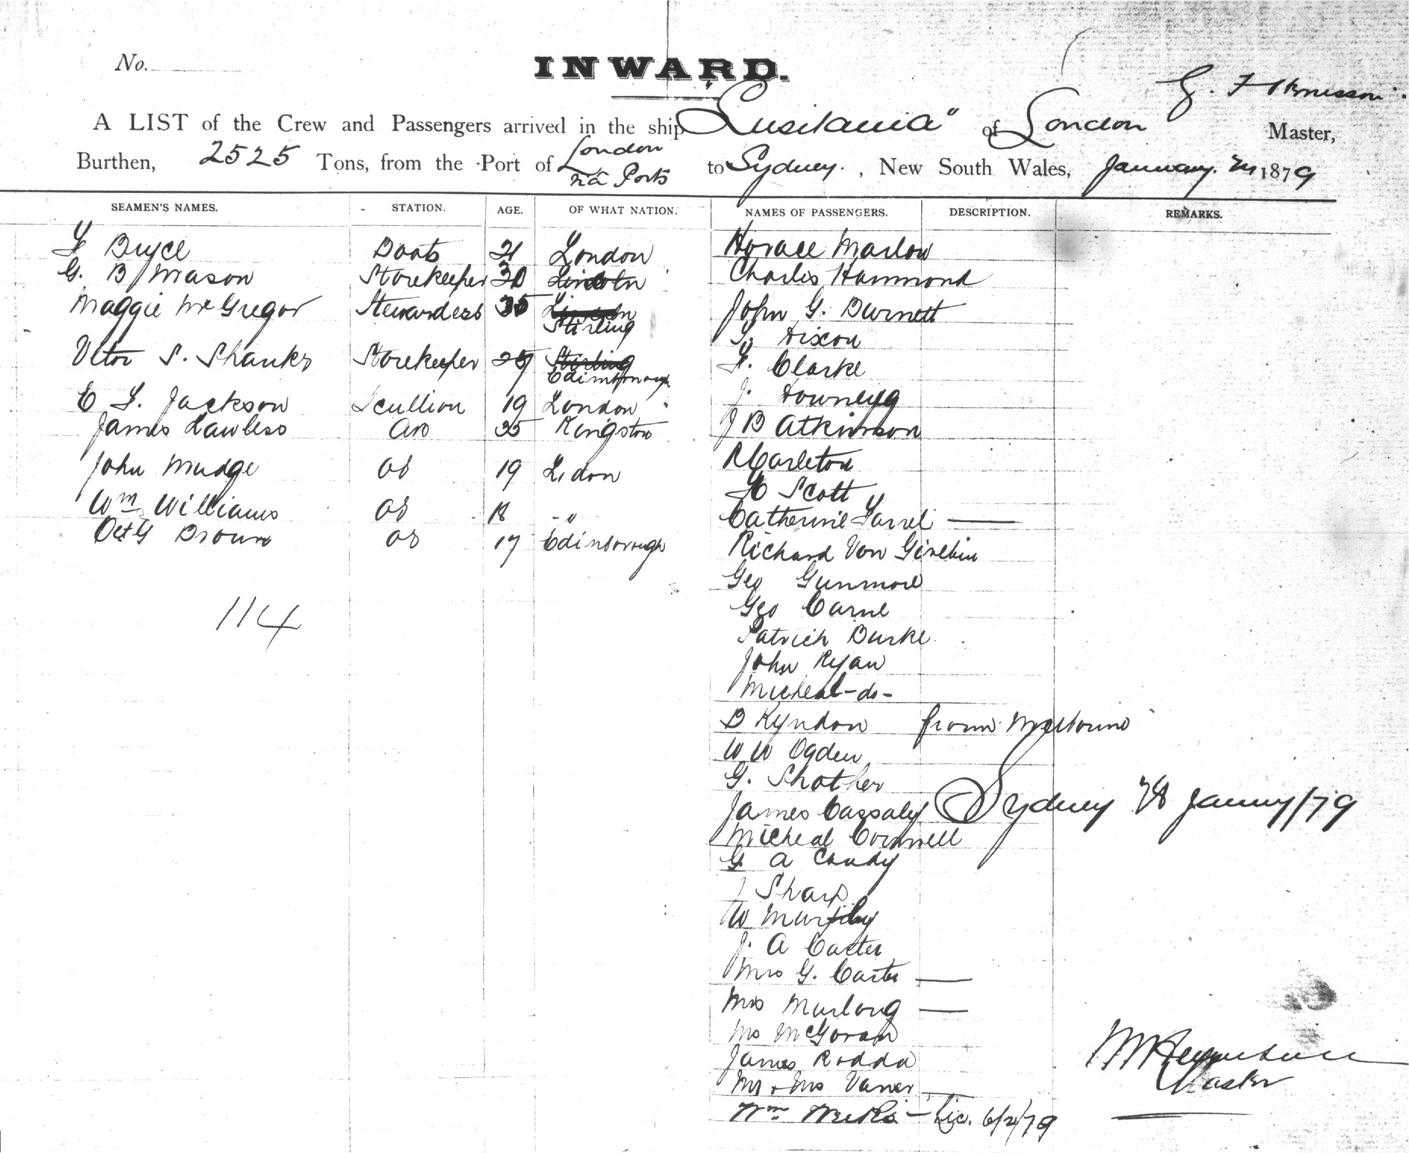 No.
INWARD.
A LIST of the Crew and Passengers arrived in the ship "Lusitania" of London Master,
Burthen, 2525 Tons, from the Port of London via Ports to Sydney. , New South Wales, January 1879
SEAMEN'S NAMES. STATION. AGE. OF WHAT NATION. NAMES OF PASSENGERS. DESCRIPTION. REMARKS.
Bryce Boots 21 London
G. B Mason Storekeeper 30 Lincoln
Maggie McGregor Stewardess 35 Stirling
S. Shanks Storekeeper Stirling Edinborough
Jackson Scullion 19 London
James Lawless 35 Kingston
John Mudge OS 19
Wm Williams OS 18 - "
Brown OS 17 Edinborough
114
Horace Marlow
Charles Hammond
John G. Burnett
Hixon
Clarke
J. Downing
J B Atkinson
R Carleton
Scott
Catherine Farrel
Richard Von
Geo Gunmore
Geo Carne
Patrick Burke
John Ryan
Micheal -do-
D Ryndon from Melbourne
W W Ogden
G. Shother
James Cassaly
Sydney Janury/79
Micheal Cornwell
G A Candy
J Sharp
W Murphy
J. A Carter
Mrs G. Carter
Mrs Murlong
Ms McGoran
James Rodda
Mr & Mrs
Wm Weeks - Lic. 6/2/79
Master